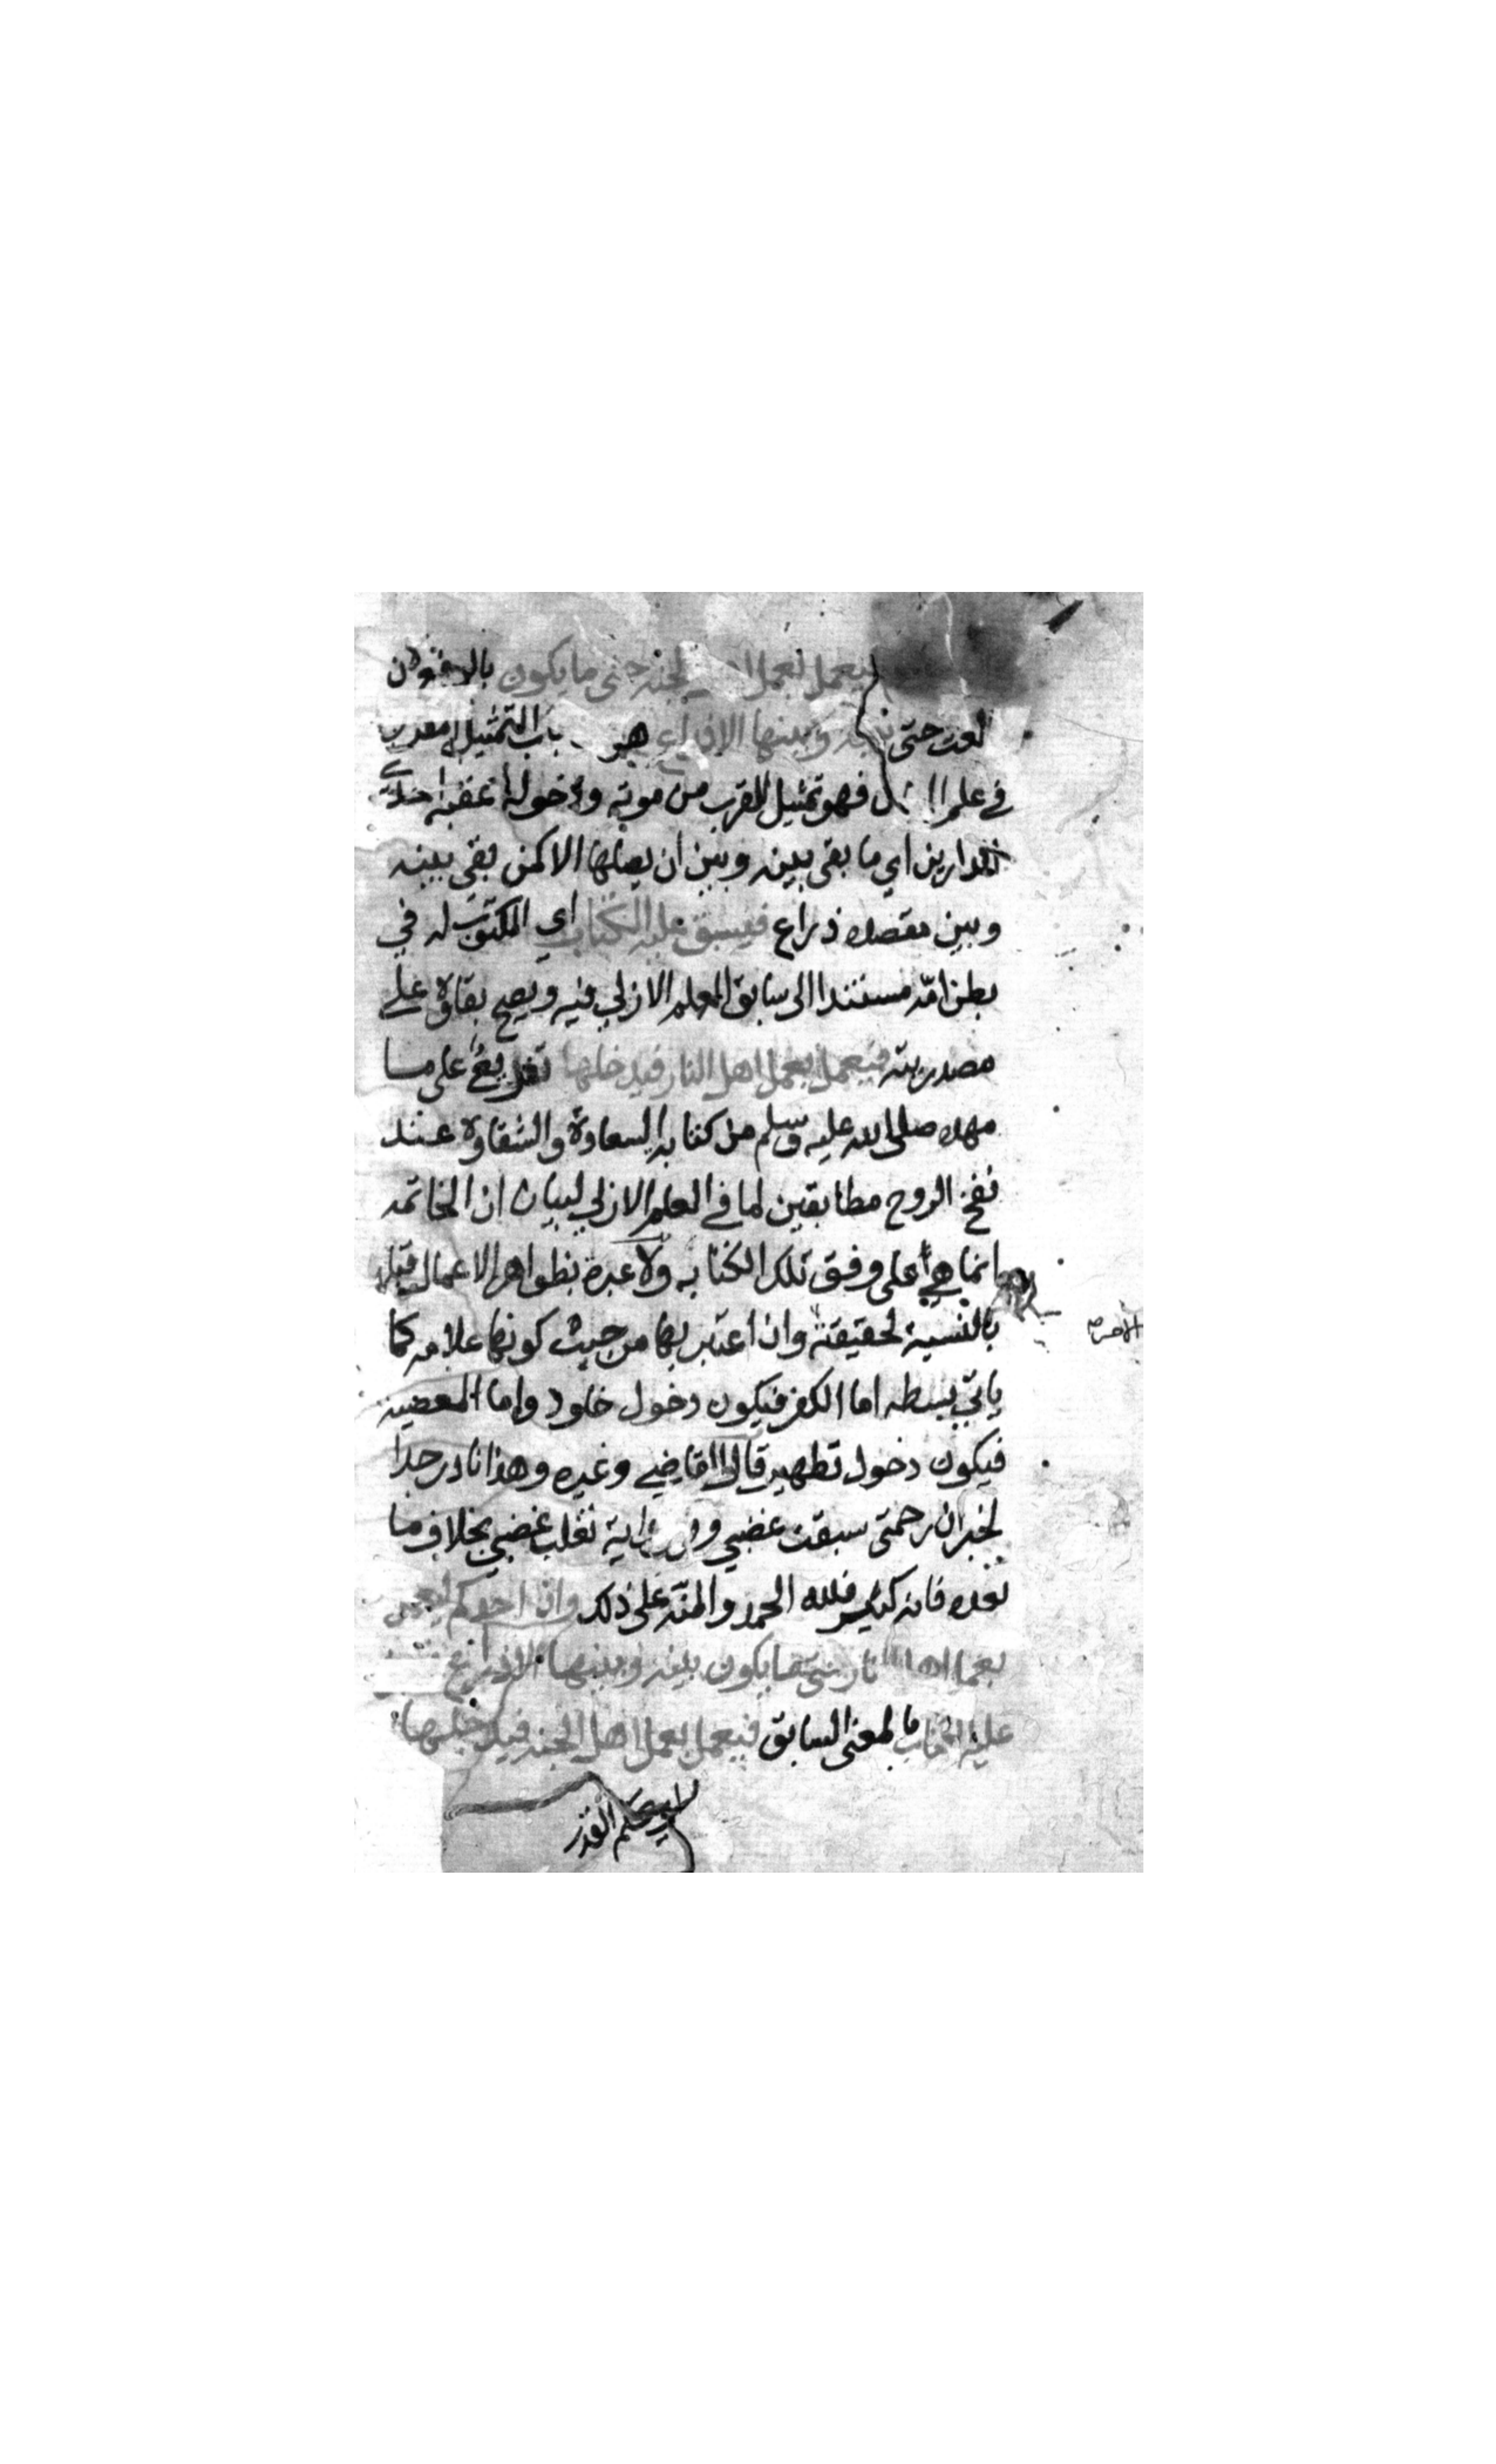 ليعمل بعمل اهل الجنة حتى ما يكون بالرفع لان
لعت حتى بينه وبينها الا ذراع هو باب التمثيل المقرر
في علم فهو تمثيل للقرب من موته ودخوله عقبه احدى
الدارين اي ما بقي بينه وبين ان يصلها الا كمن بقي بينه
وبين مقصده ذراع فيسبق عليه الكتاب اي المكتوب له في
بطن امه مستندا الى سابق العلم الازلي فيه ويصح بقاؤه على
مصدريته فيعمل بعمل اهل النار فيدخلها تفريع على ما
مهده صلى الله عليه وسلم من كتابه السعادة والشقاوة عند
نفخ الروح مطابقين لما في العلم الازلي لبيان ان الخاتمه
انما هي على وفق تلك الكتابه ولا عبرة بظواهر الاعمال قبلها
بالنسبة لحقيقة وان اعتبر بها من حيث كونها علامه كما
ياتي بسطه اما الكفر فيكون دخول خلود واما المعصية
فيكون دخول تطهير قال القاضي وغيره وهذا نادر جدا
لخبر ان رحمتي سبقت غضبي وفي رواية تغلب غضبي بخلاف ما
بعده فانه كثير فلله الحمد والمنة على ذلك وان احدكم ليعمل
بعمل اهل النار حتى ما يكون بينه وبينها الا ذراع
عليه الكتاب بالمعنى السابق فيعمل بعمل اهل الجنة فيدخلها
القدر